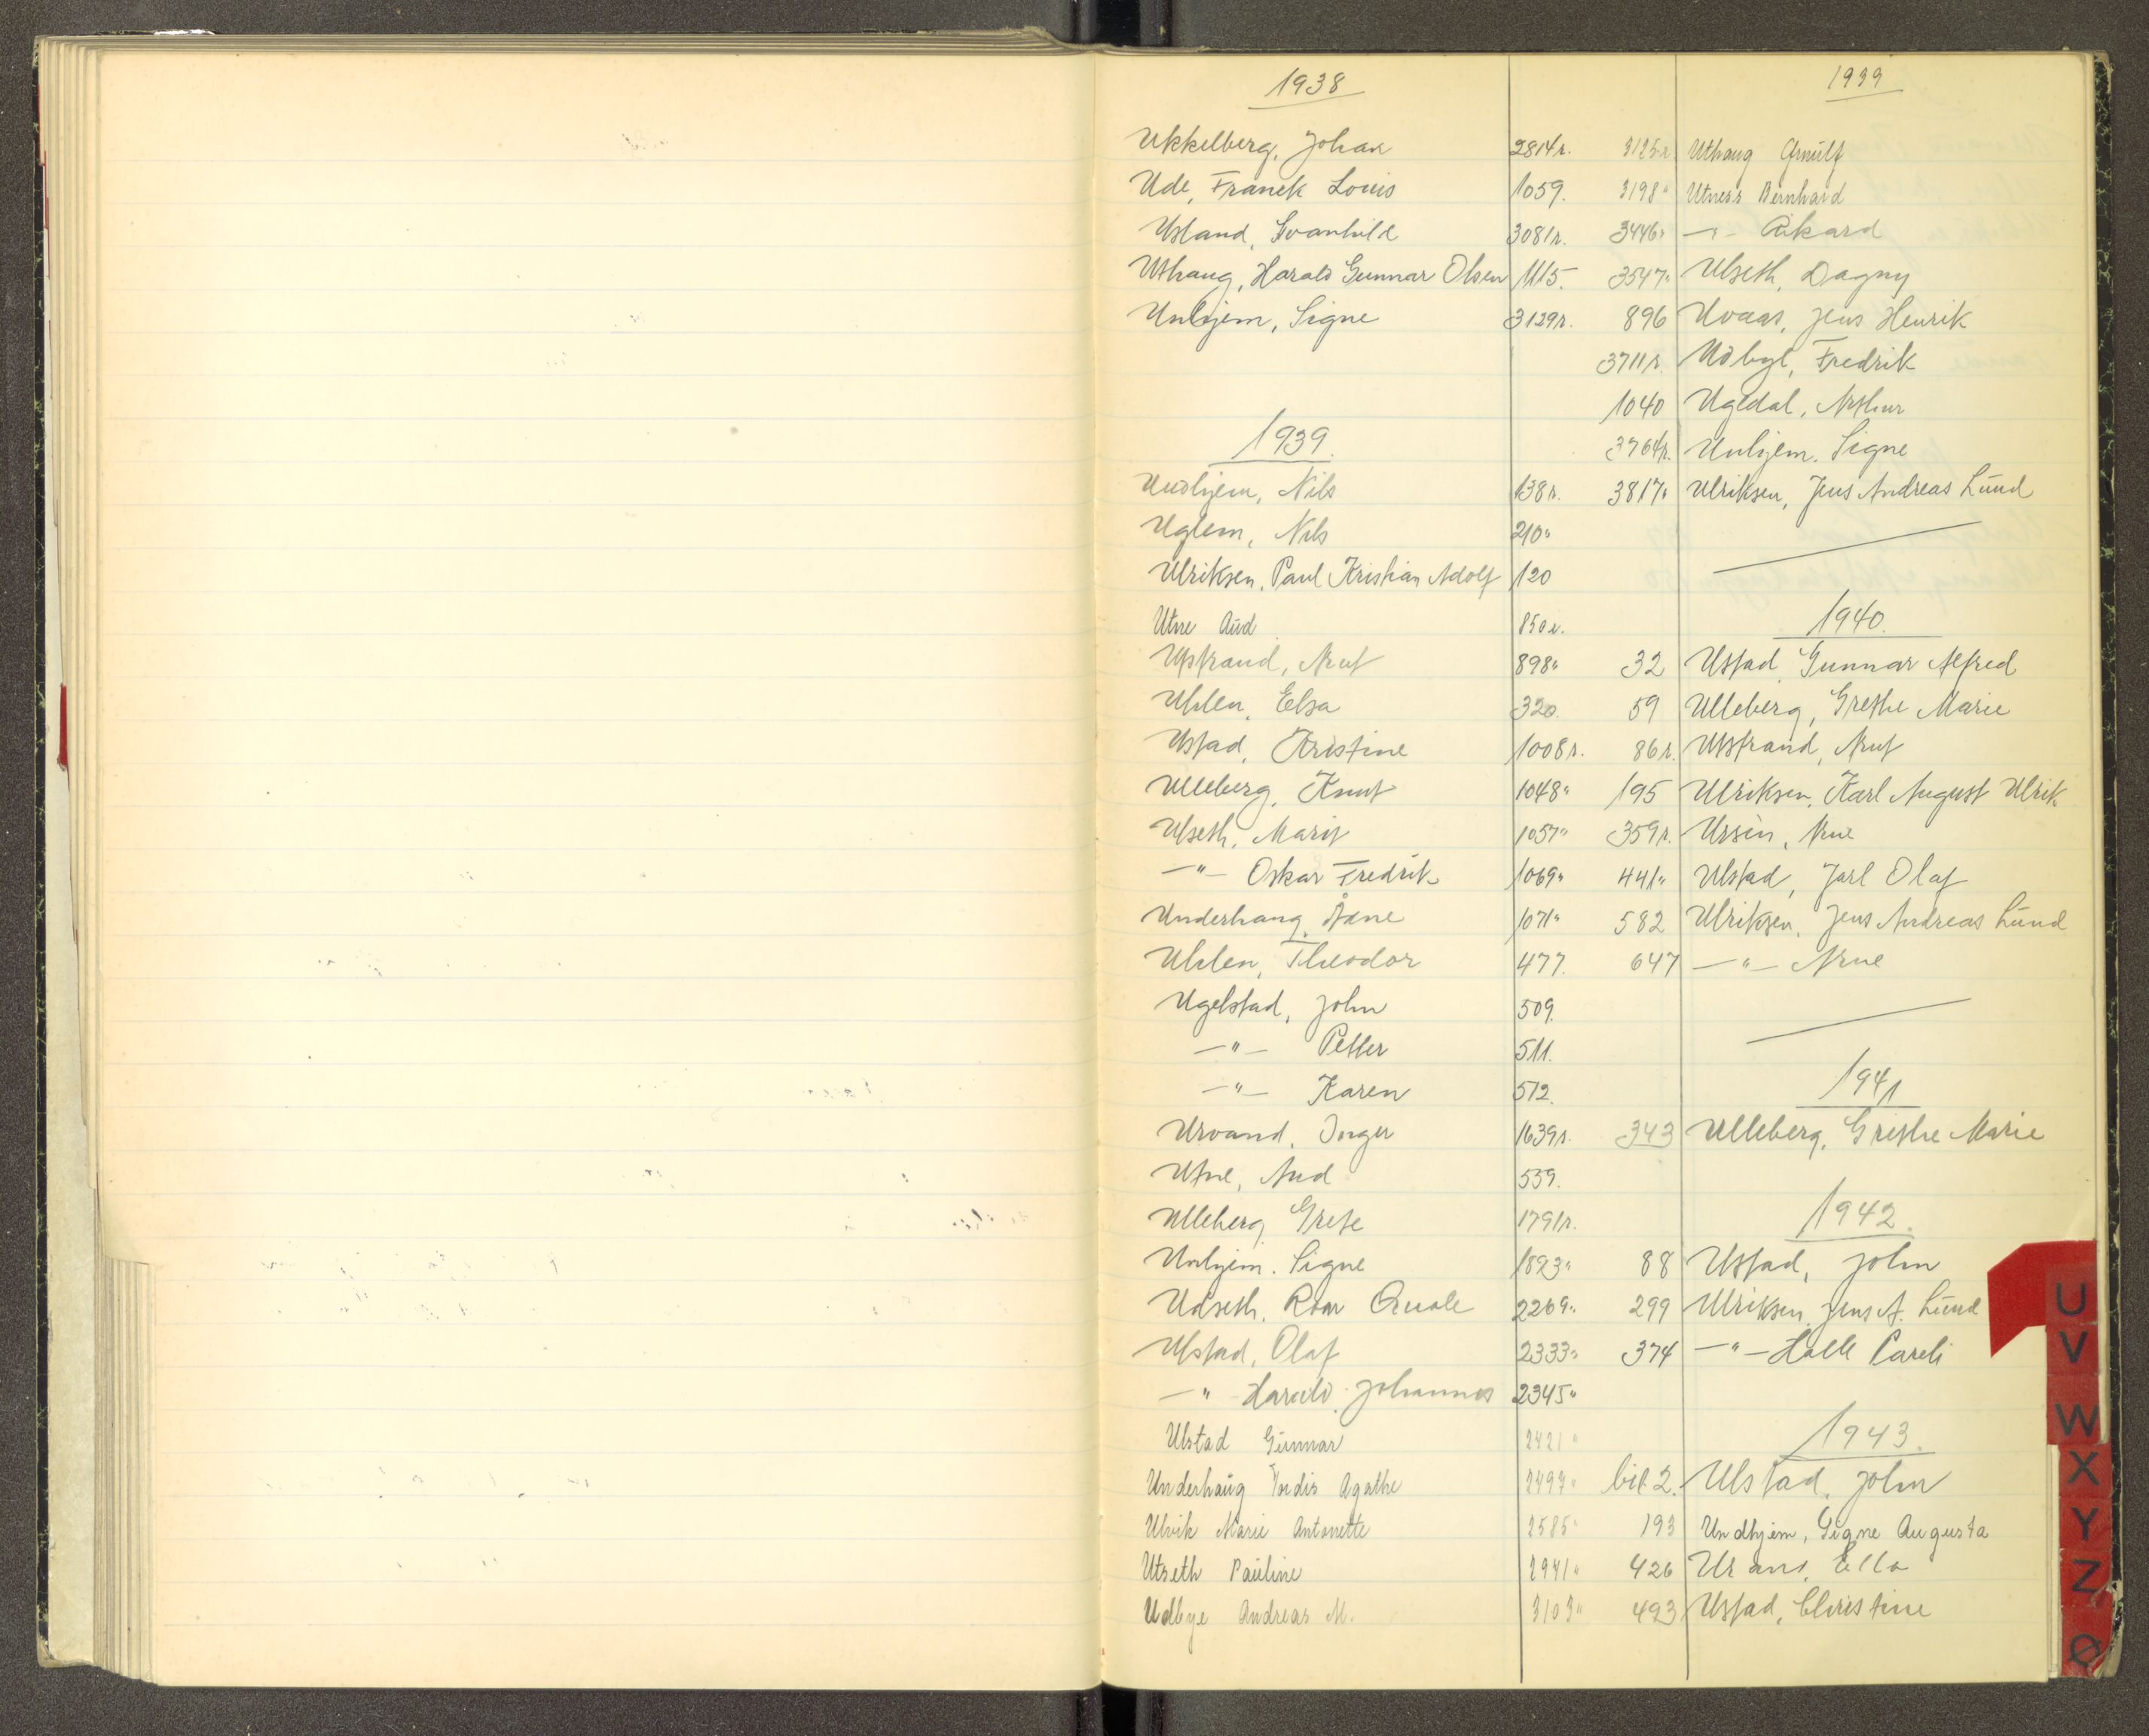 1938
Ukkelberg, Johan 2814r.
Ude, Franck Louis 1059.
Usland, Svanhild 3081r.
Uthaug, Harald Gunnar Olsen 1115.
Unhjem, Signe 3129r.
1939.
Undhjem, Nils 138r.
Uglem, Nils 210"
Ulriksen, Paul Kristian Adolf 120
Utne Aud 850r.
Utstrand, Knut 898"
Uhlen, Elsa 320.
Ustad, Kristine 1008r.
Ulleberg, Knut 1048"
Ulseth, Marit 1057"
—"— Oskar Fredrik 1069"
Underhaug, Åsne 1071"
Uhlen, Theodor 477.
Ugelstad, John 509.
—"— Petter 511.
—"— Karen 512.
Urvand, Inger 1639r.
Utne, Aud 539.
Ulleberg Grete 1791r.
Unhjem. Signe 1893"
Udseth, Roar Quale 2269"
Ulstad, Olaf 2333"
—"— Harald Johannes 2345"
Ulstad Gunnar 2421"
Underhaug Tordis Agathe 2497"
Ulvik Marie Antonette 2585"
Utseth Pauline 2941"
Udbye Andreas M. 3103"
1939
3125r Uthaug Arnulf
3198" Utness Bernhard
3446" —"— Rikard
3547" Ulseth, Dagny
896 Uvaas, Jens Henrik
3711r. Udbye, Fredrik
1040 Ugedal, Arthur
3764r. Unhjem. Signe
3817" Ulriksen, Jens Andreas Lund
1940.
32 Ustad Gunnar Alfred
59 Ulleberg, Grethe Marie
86r. Utstrand, Knut
195 Ulriksen, Karl August Ulrik
359r. Ursin, Arne
441" Ulstad, Jarl Olaf
582 Ulriksen, Jens Andreas Lund
647 —"— Arne
1941
343 Ulleberg, Grethe Marie
1942.
88 Ustad, John
299 Ulriksen, Jens A. Lund
374 —"— Halle Pareli
1943.
bil. 2. Ulstad. John
193 Undhjem, Signe Augusta
426 Urans, Ella
493 Ustad, Christine
U
V
W
X
Y
Z
Ø